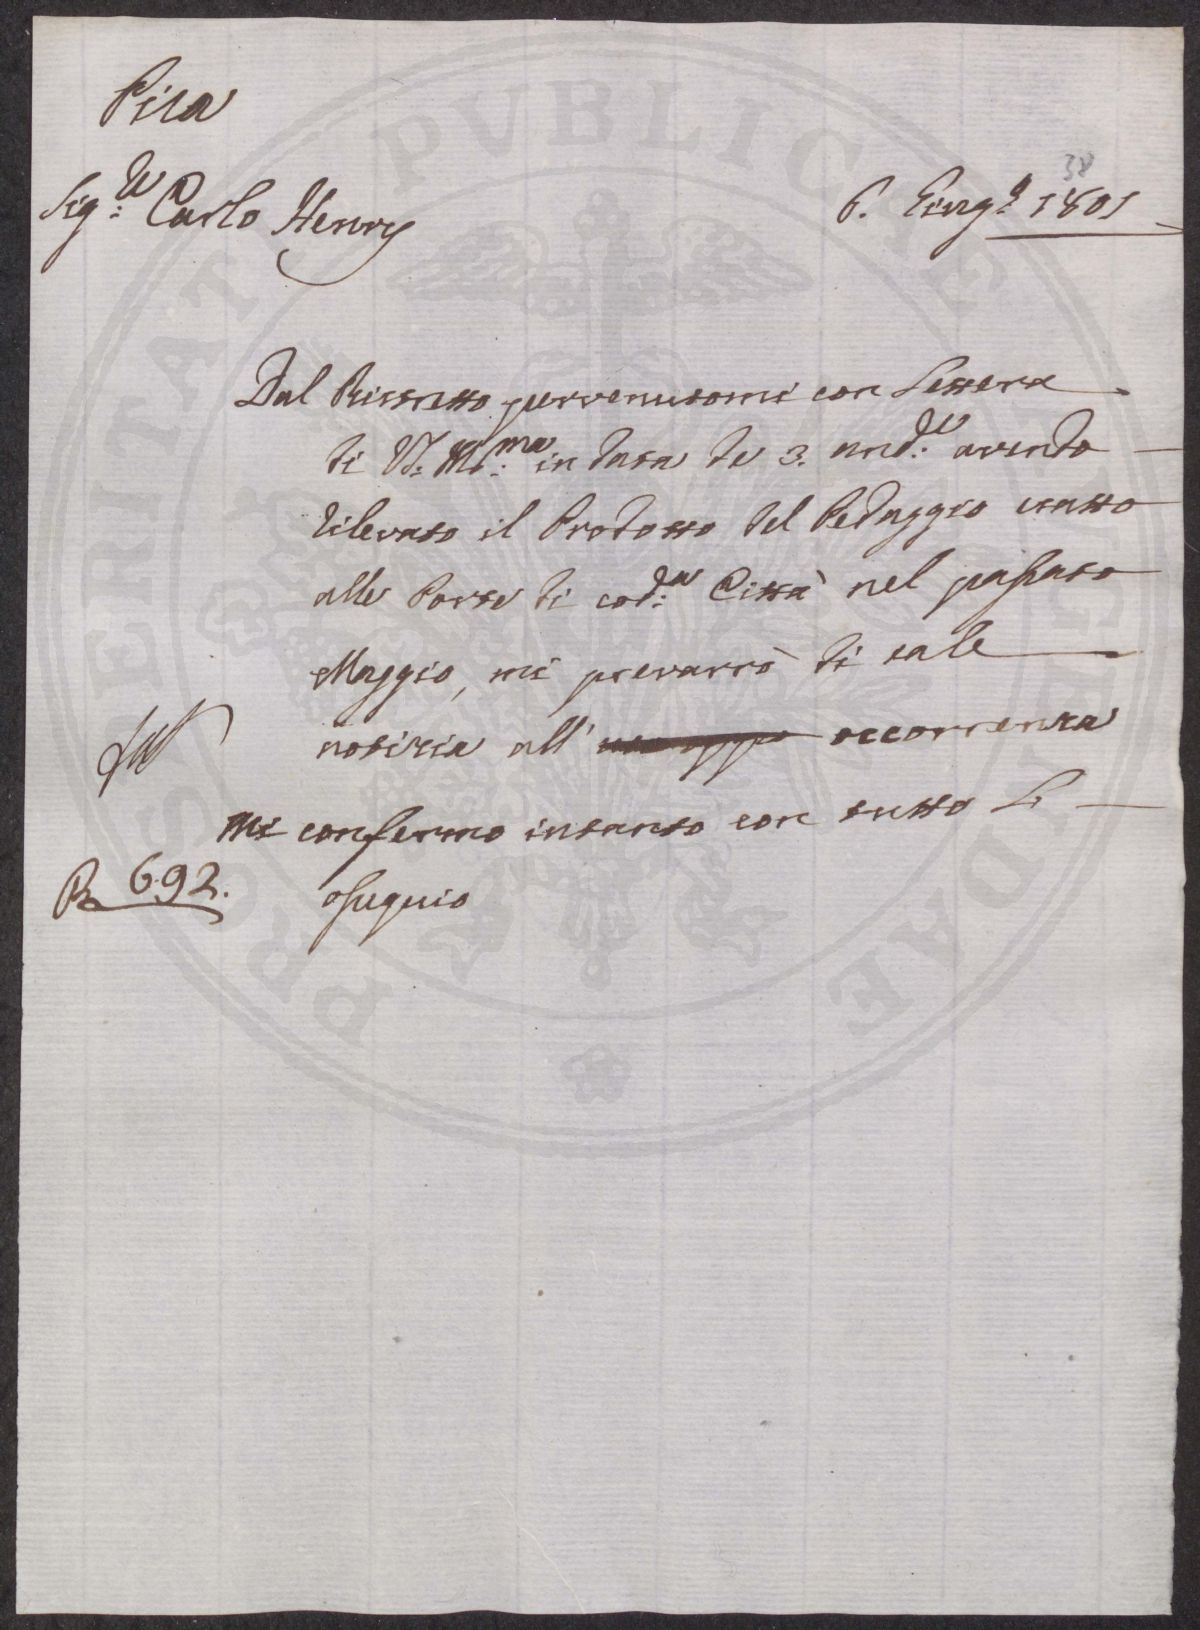 Pisa
38
Sig:re Carlo Henry
6. Giug:o 1801
Dal Ristretto pervenutomi con Lettera
di VS: Ill:ma in data de 3. and:te avendo
rilevato il Prodotto del Pedaggio esatto
alle Porte di cod:a Città nel passato
Maggio, mi prevarrò di tale
notizia all' occorrenza
Mi confermo intanto con tutto L'
ossequio
R 692.
PROSPERITATI PVBLICAE PROVIDENDAE